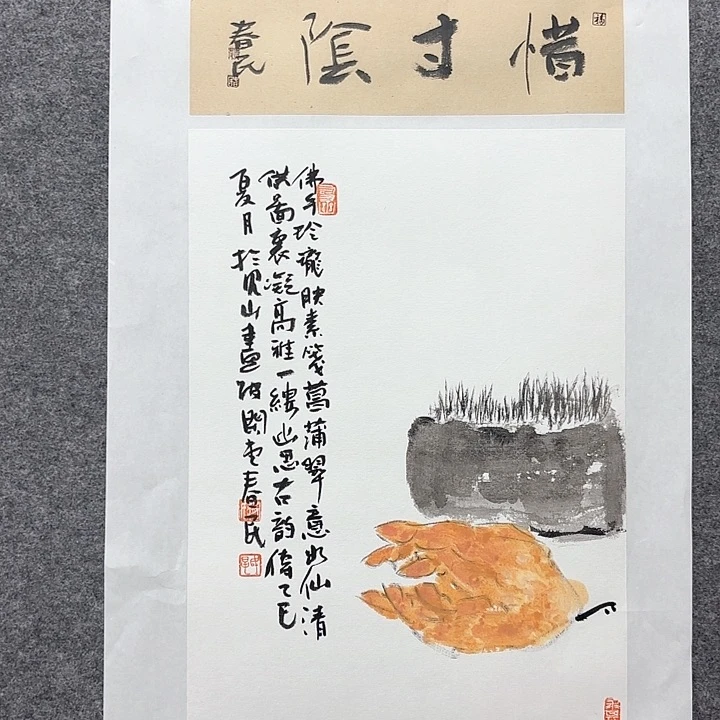 惜寸陰
春民
佛手玲瓏映素箋菖蒲翠意如仙清
供圖裏凝高雅一縷幽思古韵傳乙巳
夏月於見山畫堂春民